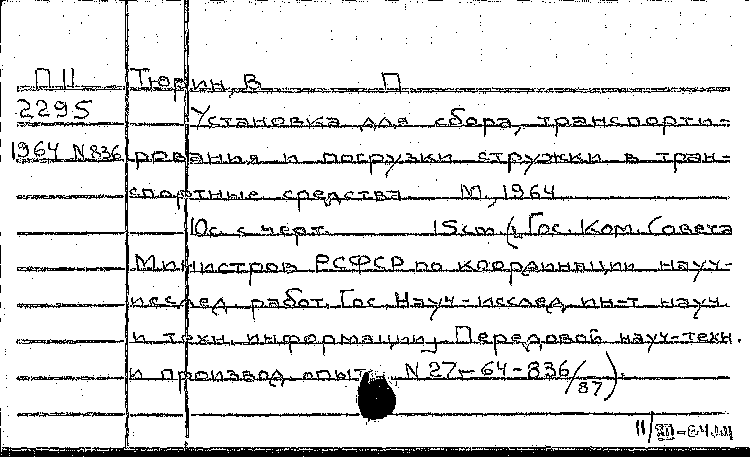 П II Тюрин, В П
2295 Установка для сбора, транспорти-
1964 N 836 рования и погрузки стружки в тран-
спортные средства М., 1964
10с. с черт. 15 см. (Гос. Ком. Совета
Министров РСФСР по координации науч-
исслед. работ. Гос. Науч-исслед. ин-т науч.
и техн. информации. Передовой науч-техн.
и производ. опыт N 27-64-836/87).